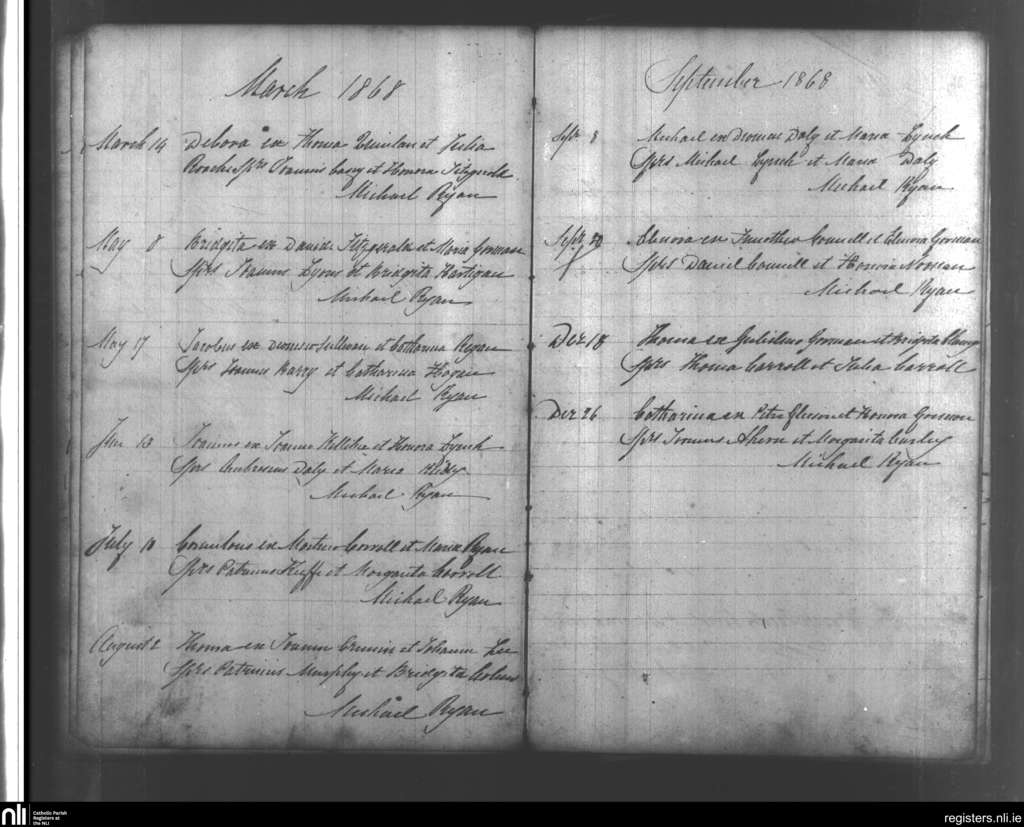 March 1868
March 14 Debora ex Thoma Quinlan et Julia
Roache Sprs Joannis Casey et Honora Fitzgerald
Michael Ryan
May 8 Bridgita ex David Fitzgerald et Maria Gorman
Sprs Joannes Lyons et Bridgita Hartigan
Michael Ryan
May 17 Jacobus ex Dionisio Sullivan et Catharina Regan
Sprs Joannes Barry et Catharina Hogan
Michael Ryan
June Joannes ex Joanne Kelleher et Honora Lynch
Sprs Ambrosius Daly et Maria
Michael Ryan
July 10 ex Carroll et Maria Ryan
Sprs Patricius Keeffe et Margarita Carroll
Michael Ryan
August 2 Thoma ex Joanne Cremin et Johanna Lee
Sprs Patricius Murphy et Bridgita
Michael Ryan
September 1868
Sept. 8 Michael ex Daly et Maria Lynch
Sprs Michael Lynch et Maria Daly
Michael Ryan
Sept. 20 Elenora ex Timotheo Connell et Elenora Gorman
Sprs Daniel Connell et Honora Noonan
Michael Ryan
Dec 18 Thoma ex Gulielmo Gorman et Bridgita
Sprs Thoma Carroll et Julia Carroll
Dec 26 Catharina ex Petro Gleeson et Honora Gorman
Sprs Joannes Ahern et Margarita Curley
Michael Ryan
nli
Catholic Parish
Registers at
the NLI
registers.nli.ie